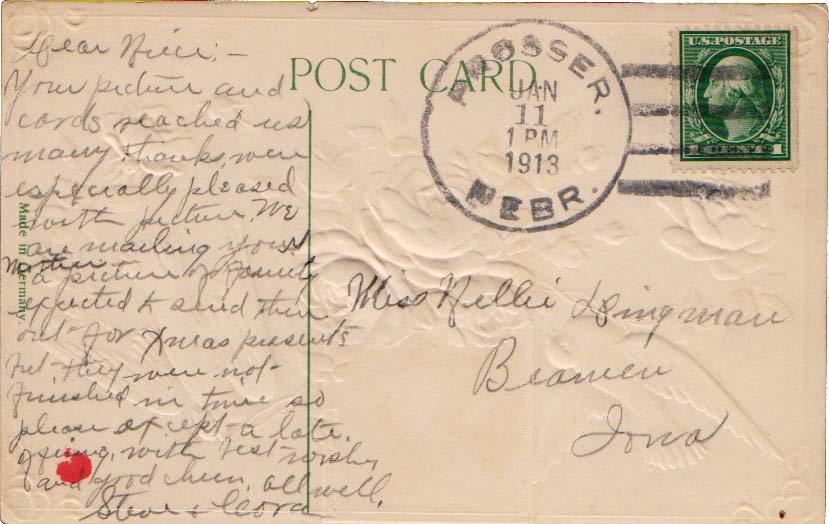 Dear Niece;-
Your picture and
cards reached us
many thanks, were
especially pleased
with picture. We
are mailing your
Mother a picture of family
expected to send them
out for Xmas presents
but they were not
finished in time so
please except a late
with best wishes
and good cheer. all well.
Steve & Cora
Made in Germany.
POST CARD.
PROSSER.
JAN
11
1 PM
1913
NEBR.
U.S. POSTAGE
1 CENTS 1
Miss Nellie
Beaman
Iowa